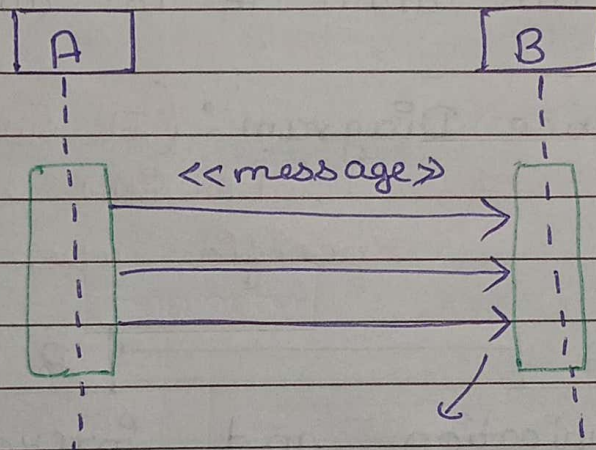 A
B
<<message>>